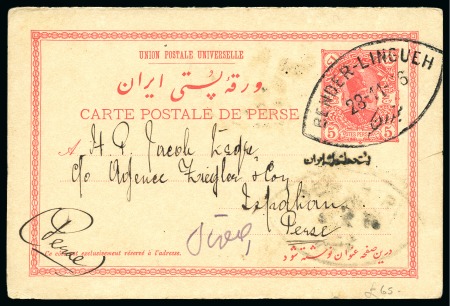 UNION POSTALE UNIVERSELLE
ورقه پستی ایران
CARTE POSTALE DE PERSE
BENDER-LINGUEH
5 5
A H. P. Jacob Esqre
c/o Agence Ziegler & Coy
Ispahan
Perse
Perse
Ce côté est exclusivement réservé à l'adresse.
درین صفحه عنوان نوشته شود